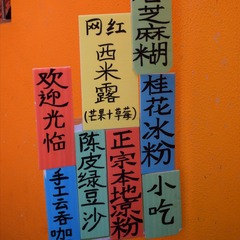 芝麻糊
网红
西米露
(芒果+草莓)
欢迎光临
桂花冰粉
陈皮绿豆沙
正宗本地凉粉
手工云吞
小吃